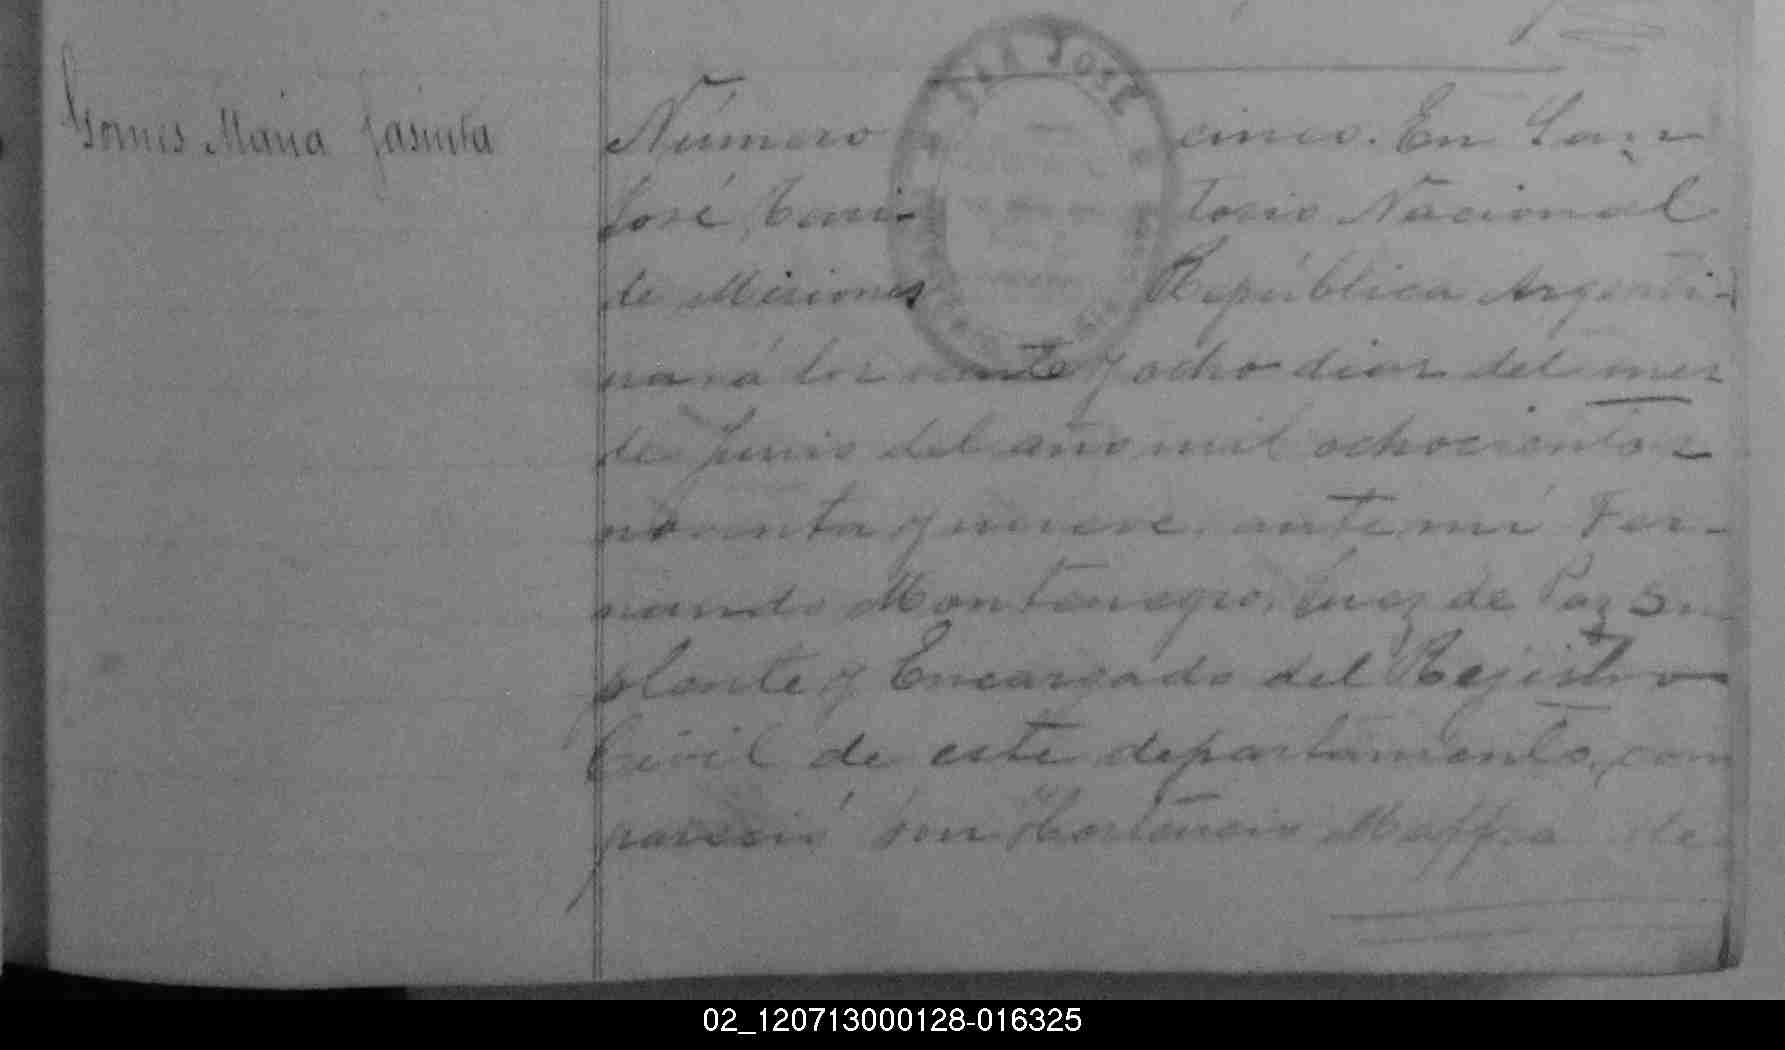 Gomes Maria Jasinta
SAN JOSÉ
Número cinco. En San
José, Terri- torio Nacional
de Misiones República Argenti-
na á los veinte y ocho dias del mes
de Junio del año mil ochocientos
noventa y nueve, ante mi Fer-
nando Montenegro, Juez de Paz Su
plente y Encargado del Rejistro
Civil de este departamento, com
pareció don Hortencio Maffra de
02_120713000128-016325